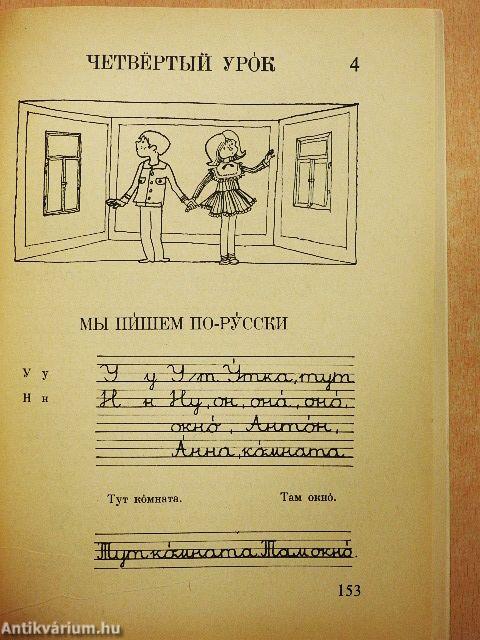 ЧЕТВЁРТЫЙ УРО́К 4
МЫ ПИ́ШЕМ ПО-РУ́ССКИ
У у У у Ут У́тка, тут
Н н Н н Ну, он, она́, оно́,
окно́, Анто́н,
А́нна, ко́мната
Тут ко́мната. Там окно́.
Тут ко́мната. Там окно́.
153
Antikvárium.hu